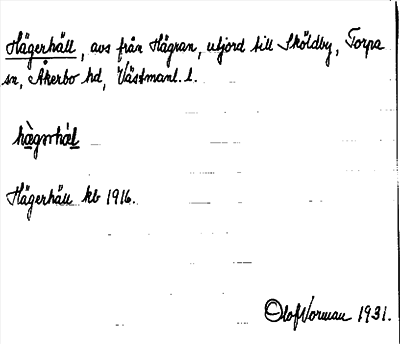 Hägerhäll, avs från Hägran, utjord till Sköldby, Torpa
sn, Åkerbo hd, Västmanl. l.
hägerhäl
Hägerhäll kb 1916.
Olof Norman 1931.